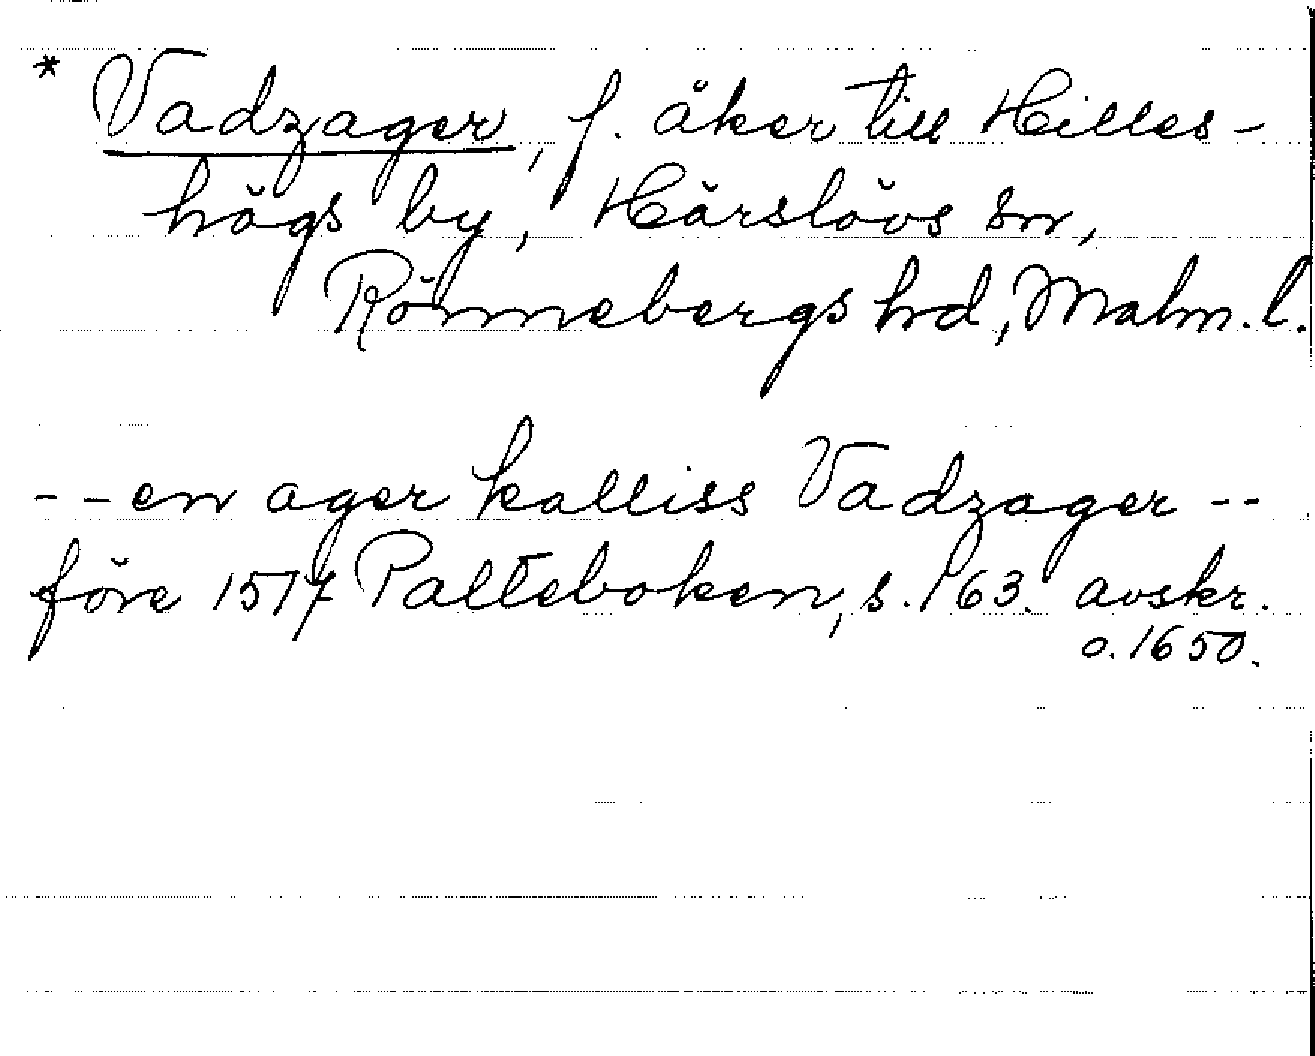 * Vadzager, f. åker till Hilles-
högs by, Härslövs sn,
Rönnebergs hd, Malm. l.
- - en ager kalliss Vadzager - -
före 1517 Palteboken, s. 163. avskr.
o. 1650.